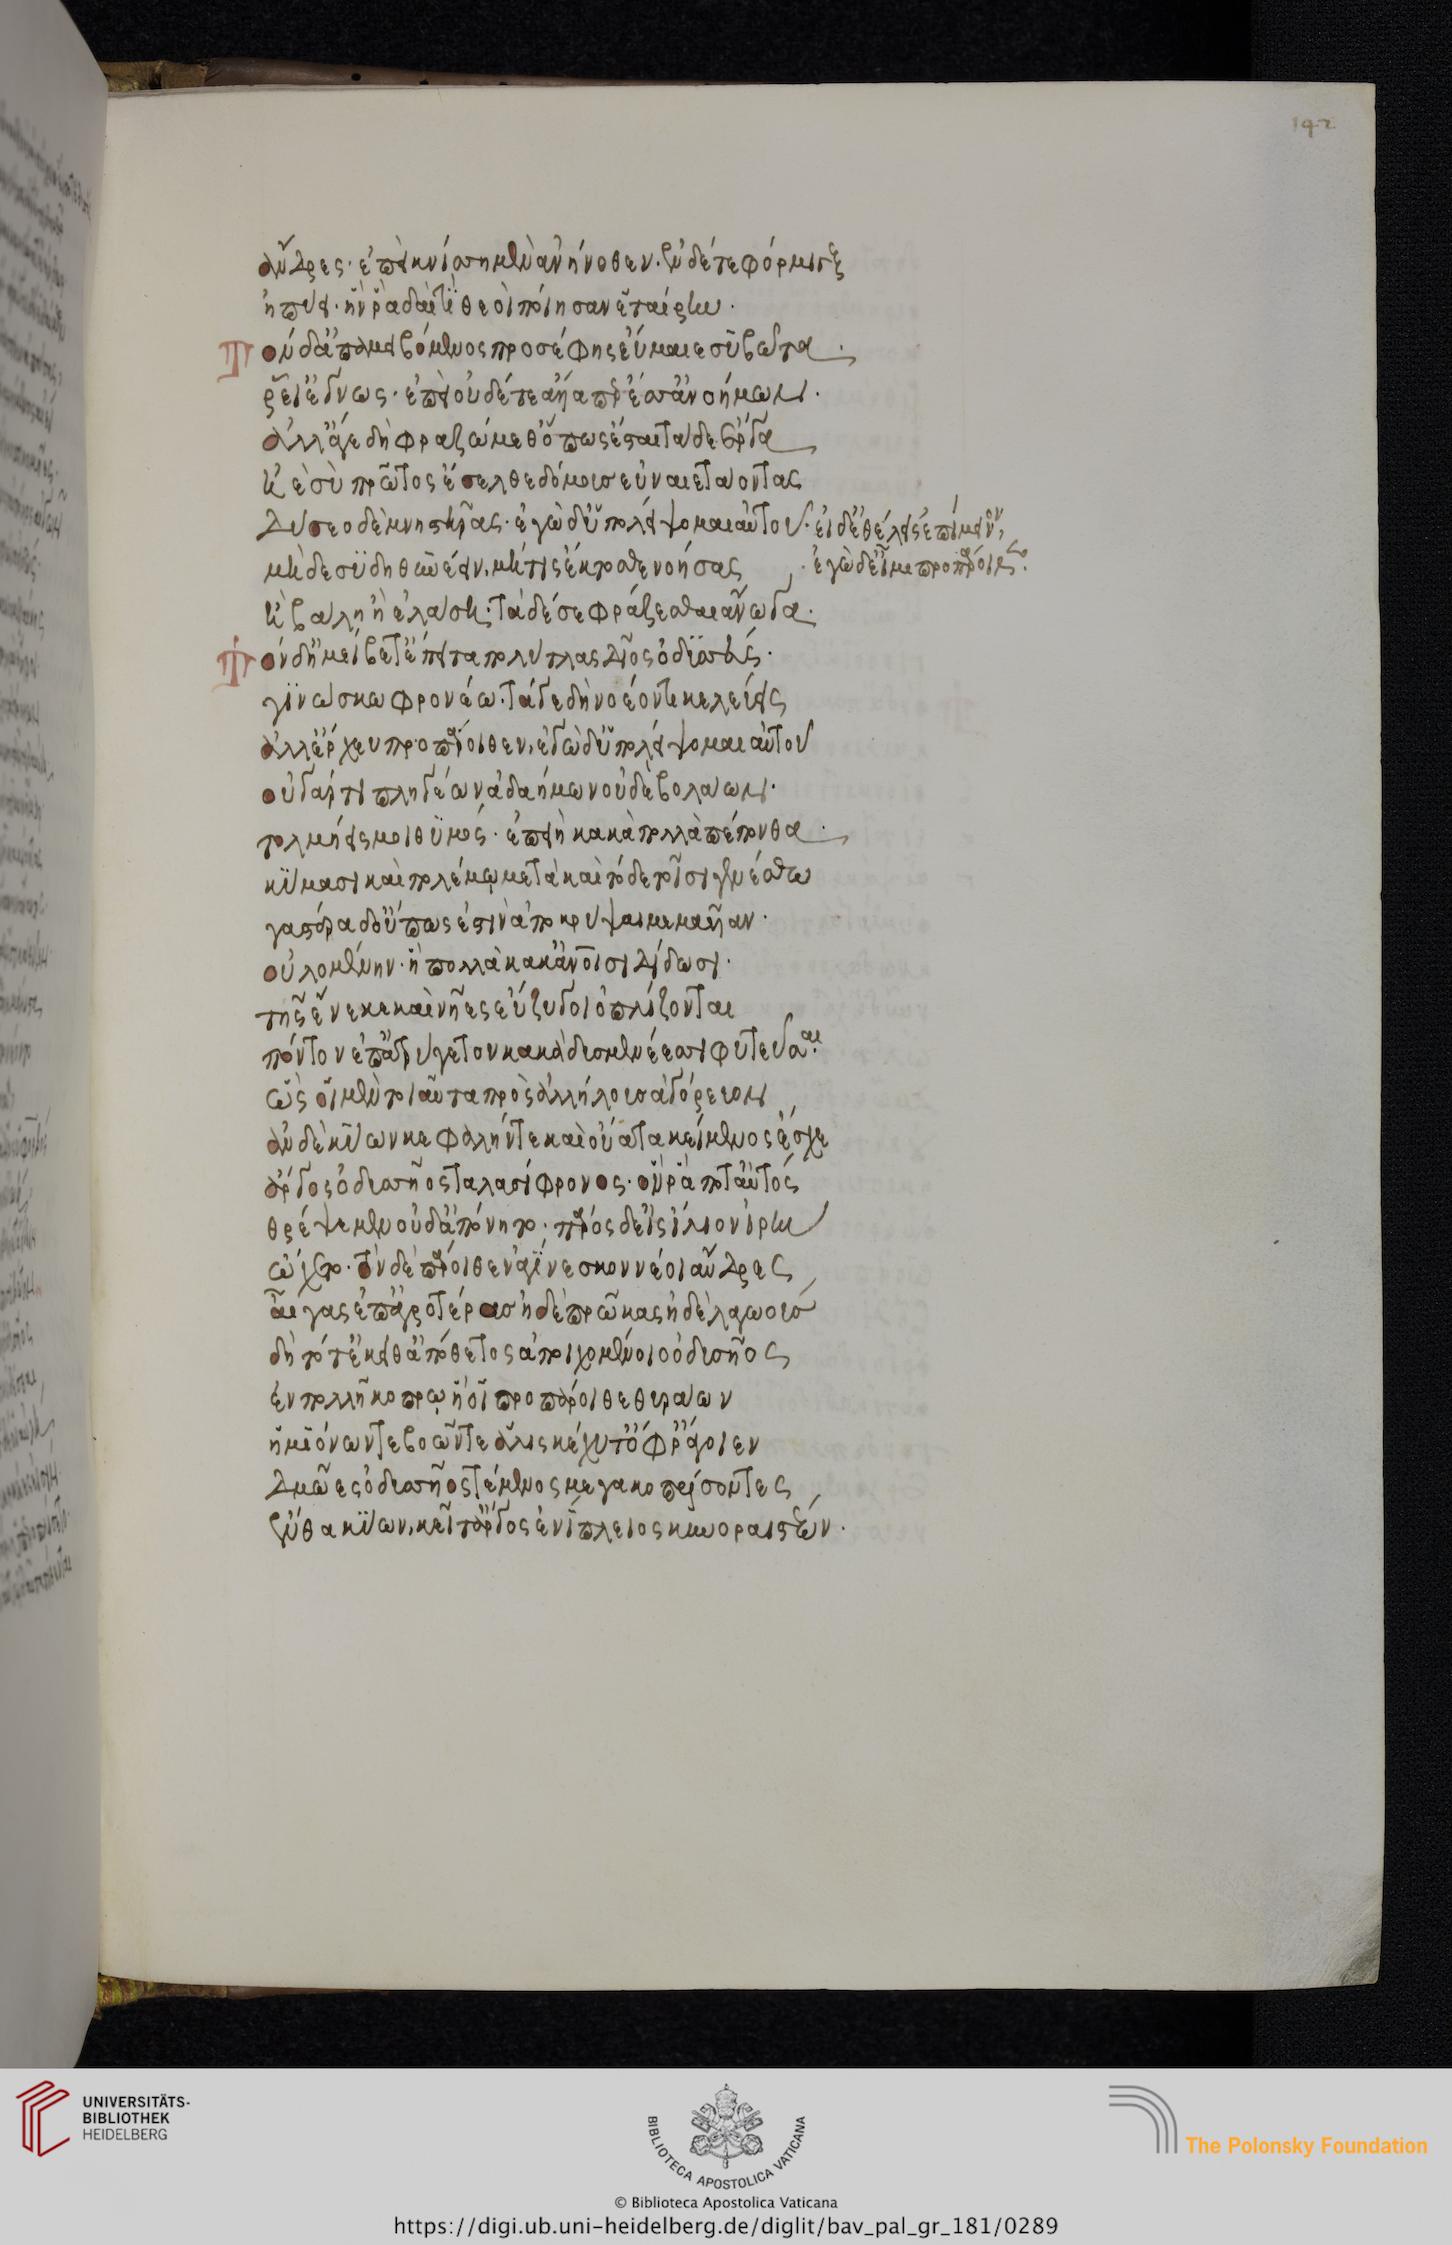 192
ἄνδρες· ἐπεὶ κνίση μὲν ἀνήνοθεν. ἐν δέ τε φόρμιγξ
ἠπύει· ἣν ἄρα δαιτὶ θεοὶ ποίησαν ἑταίρην.
Τὸν δ' ἀπαμειβόμενος προσέφης εὔμαιε συβῶτα.
ῥεῖ' ἔγνως· ἐπεὶ οὐδέ τε ἄλλα πέρ ἐσσ' ἀνοήμων.
ἀλλ' ἄγε δὴ φραζώμεθ' ὅπως ἔσται τάδε ἔργα
ἠὲ σὺ πρῶτος ἔσελθε δόμους εὐναιετάοντας
δύσεο δὲ μνηστῆρας· ἐγὼ δ' ὑπολείψομαι αὐτοῦ· εἰ δ' ἐθέλεις ἐπίμεινον,
μὴ δὲ σὺ δηθύνειν, μή τίς ἔκτοσθε νοήσας · ἐγὼ δ' εἶμι προπάροιθεν.
ἢ βάλη ἢ ἐλάση· τὰ δέ σε φράζεσθαι ἄνωγα.
Τὸν δ' ἠμείβετ' ἔπειτα πολύτλας δῖος ὀδυσσεύς.
γινώσκω φρονέω· τά γε δὴ νοέοντι κελεύεις
ἀλλ' ἔρχευ προπάροιθεν, ἐγὼ δ' ὑπολείψομαι αὐτοῦ
οὐ γάρ τι πληγέων ἀδαήμων οὐδὲ βολάων.
τολμήεις μοι θυμός· ἐπεὶ ἢ κακὰ πολλὰ πέπονθα.
κύμασι καὶ πολέμῳ μετὰ καὶ τόδε τοῖσι γενέσθω
γαστέρα δ' οὔπως ἐστὶν ἀποκρύψαι μεμαυῖαν.
οὐλομένην· ἣ πολλὰ κακ' ἀνοῖσι δίδωσι.
τῆς ἕνεκε καὶ νῆες εὔζυγοι ὁπλίζονται
πόντον ἐπ' ἀτρύγετον κακὰ δυσμενέεσσι φέρουσαι.
ὣς οἳ μὲν τοιαῦτα πρὸς ἀλλήλους ἀγόρευον
ἂν δὲ κύων κεφαλήν τε καὶ οὔατα κείμενος ἔσχε
ἄργος ὀδυσσῆος ταλασίφρονος· ὅν ῥά ποτ' αὐτός
θρέψε μὲν οὐδ' ἀπόνητο· πάρος δ' εἰς ἴλιον ἱρὴν
ᾤχετο. τὸν δὲ πάροιθεν ἀγίνεσκον νέοι ἄνδρες
αἶγας ἐπ' ἀγροτέρας ἠδὲ πρῶκας ἠδὲ λαγωούς
δὴ τότε κεῖθ' ἀπόθετος ἀποιχομένοιο ὀδυσῆος
ἐν πολλῆ κόπρῳ ἥ οἱ προπάροιθε θυράων
ἡμιόνων τε βοῶν τε ἅλις κέχυτ' ὄφρ' ἄγοιεν
δμῶες ὀδυσσῆος τέμενος μέγα κοπρίσοντες
ἔνθα κύων, κεῖτ' ἄργος ἐνίπλειος κυνοραιστέων.
UNIVERSITÄTS-
BIBLIOTHEK
HEIDELBERG
BIBLIOTECA APOSTOLICA VATICANA
The Polonsky Foundation
© Biblioteca Apostolica Vaticana
https://digi.ub.uni-heidelberg.de/diglit/bav_pal_gr_181/0289